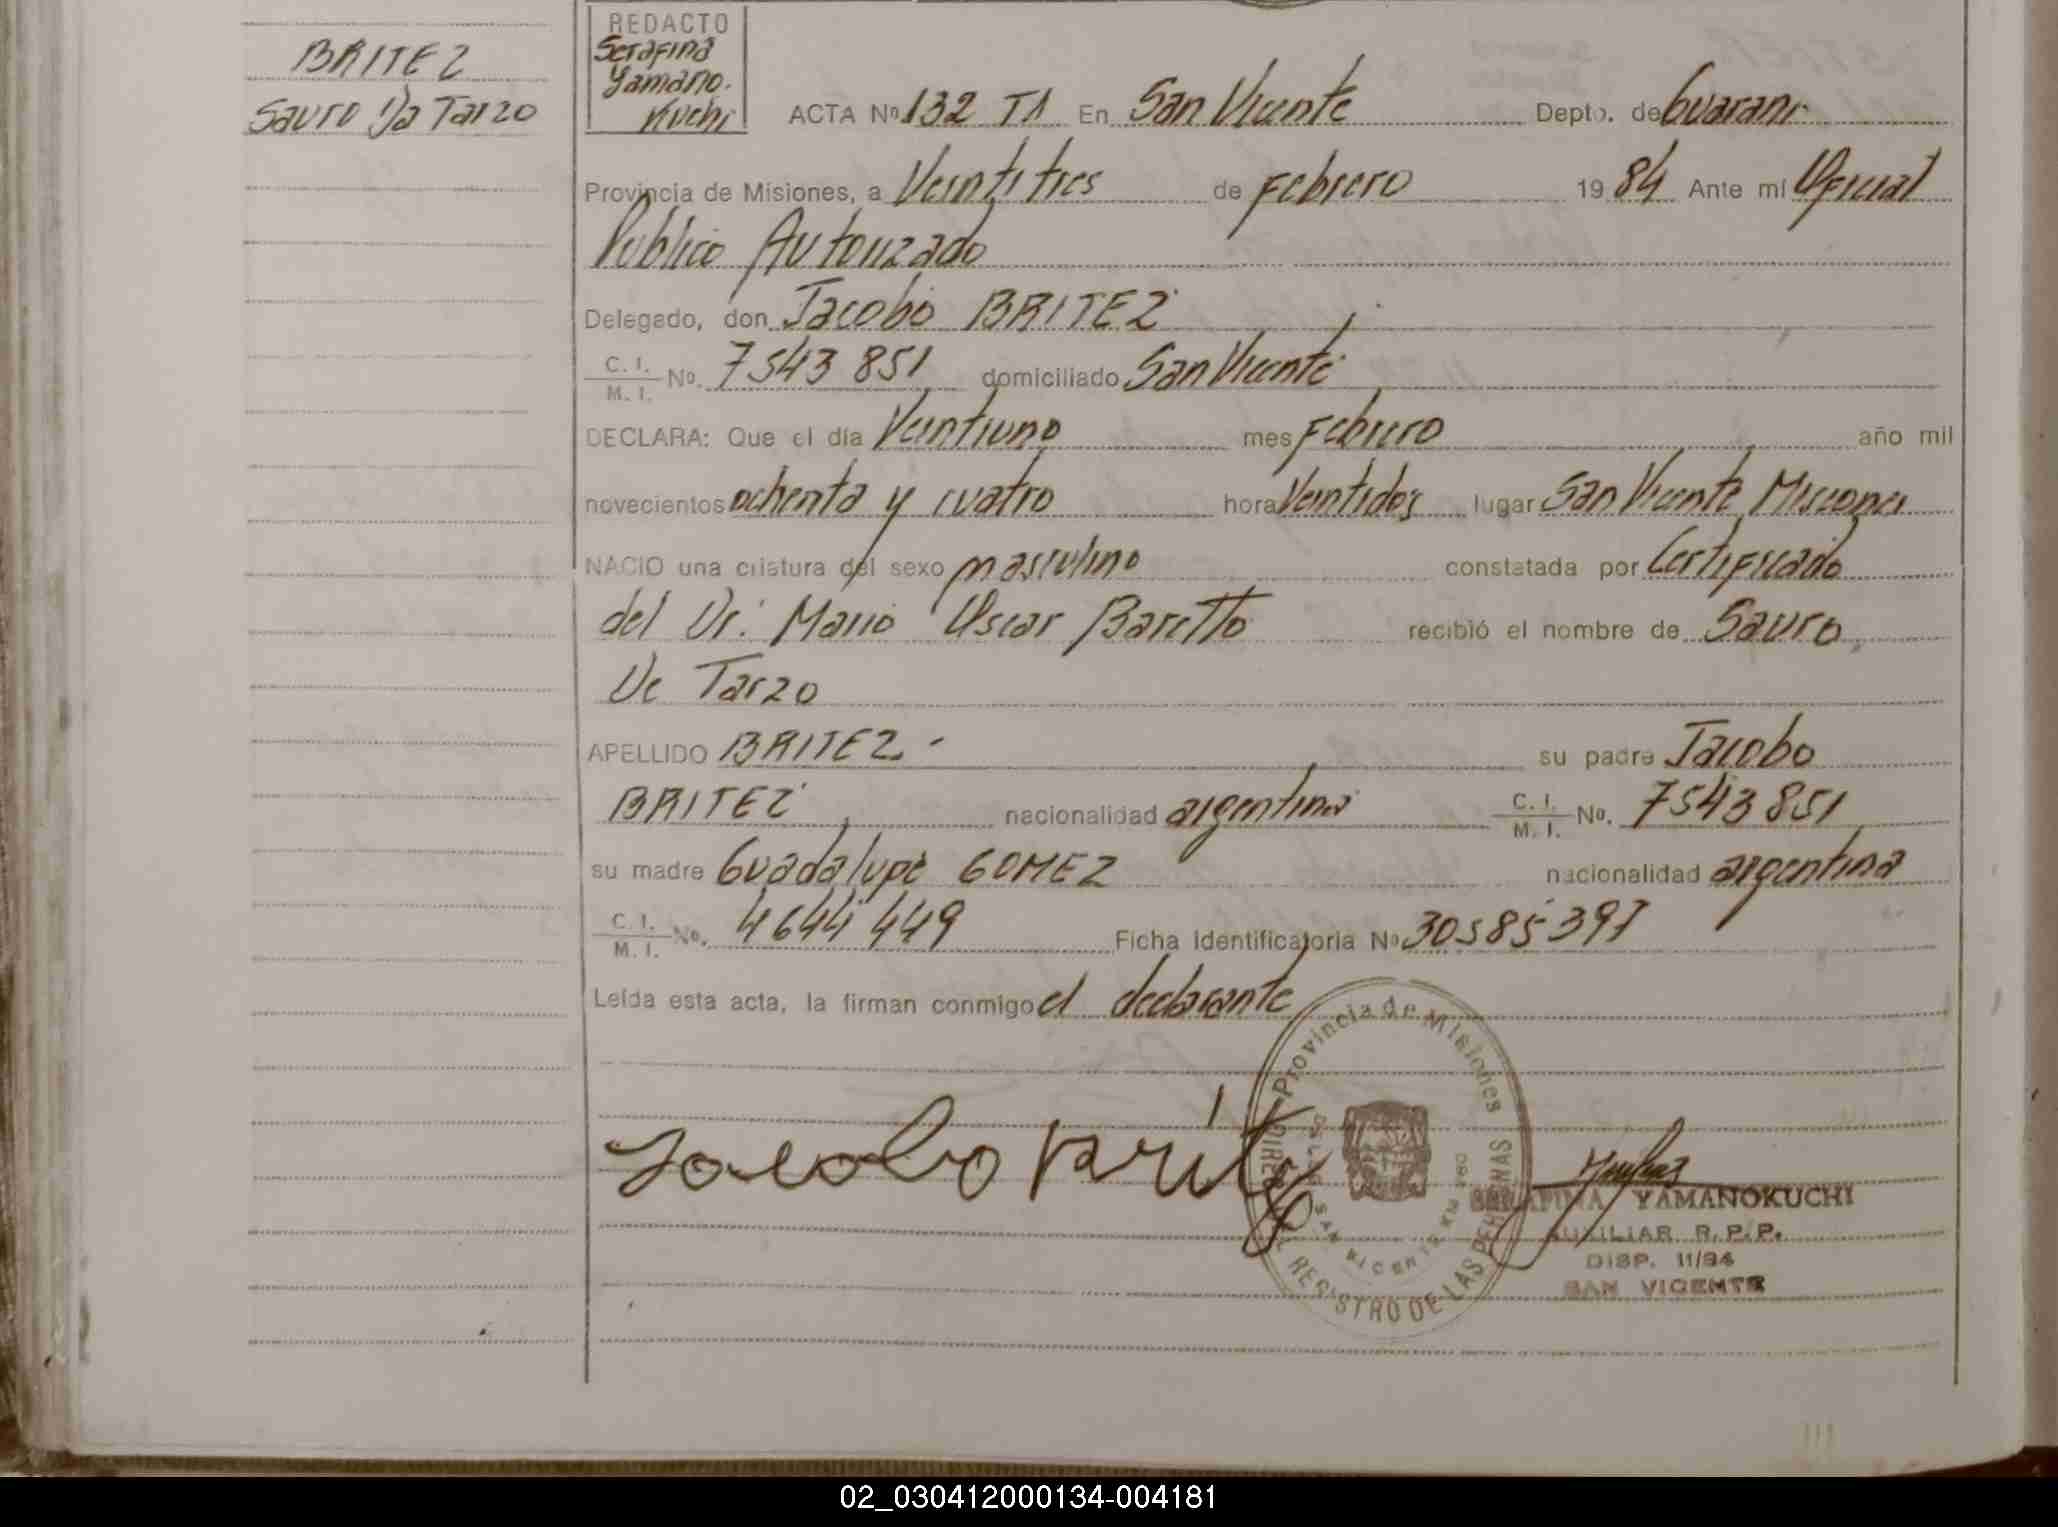 BRITEZ
Sauro Da Tarzo
REDACTO
Serafina
Yamano.
Kuchi
ACTA Nº 132 T1 En San Vicente Depto. de Guarani
Provincia de Misiones, a Veintitres de Febrero 1984 Ante mí Oficial
Publico Autorizado
Delegado, don Jacobo BRITEZ
C. I. / M. I. Nº. 7543 851 domiciliado San Vicente
DECLARA: Que el día Veintiuno mes Febrero año mil
novecientos ochenta y cuatro hora Veintidos lugar San Vicente Misiones
NACIO una criatura del sexo masculino constatada por Certificado
del Dr. Mario Oscar Baretto recibió el nombre de Sauro
De Tarzo
APELLIDO BRITEZ.- su padre Jacobo
BRITEZ nacionalidad argentina C. I. / M. I. Nº. 7543 851
su madre Guadalupe GOMEZ nacionalidad argentina
C. I. / M. I. Nº. 4644 449 Ficha Identificatoria Nº 30585397
Leída esta acta, la firman conmigo el declarante
Jacobo Britez
Provincia de Misiones
REGISTRO DE LAS PERSONAS
SAN VICENTE KM 980
SERAFINA YAMANOKUCHI
AUXILIAR R.P.P.
DISP. 11/84
SAN VICENTE
02_030412000134-004181